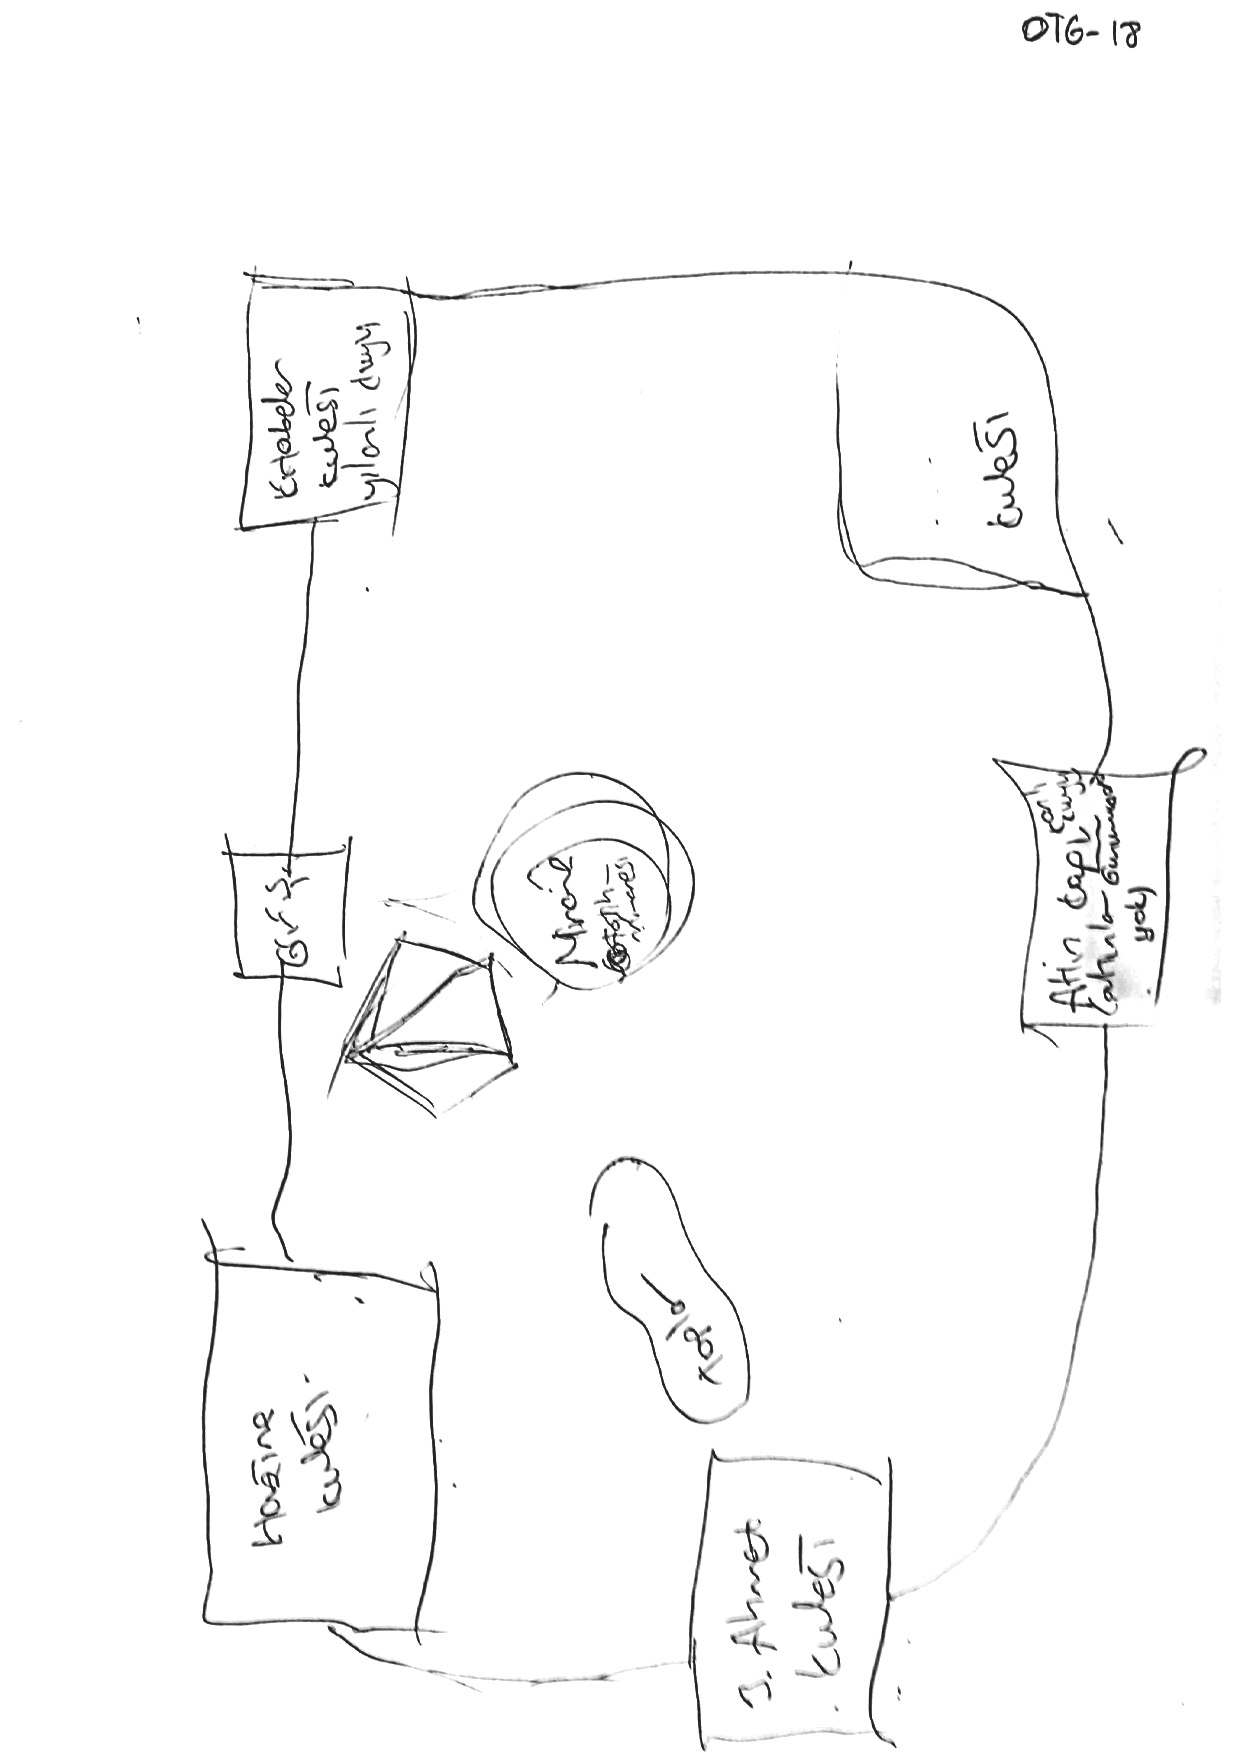 Hazine
kulesi
Giriş
Kitabeler
kulesi
yılanlı kuyu
Minare
Fatih
minaresi
toplar
3. Ahmet
kulesi
kulesi
Altın kapı
kanlı
kuyu
yok)
OTG-18